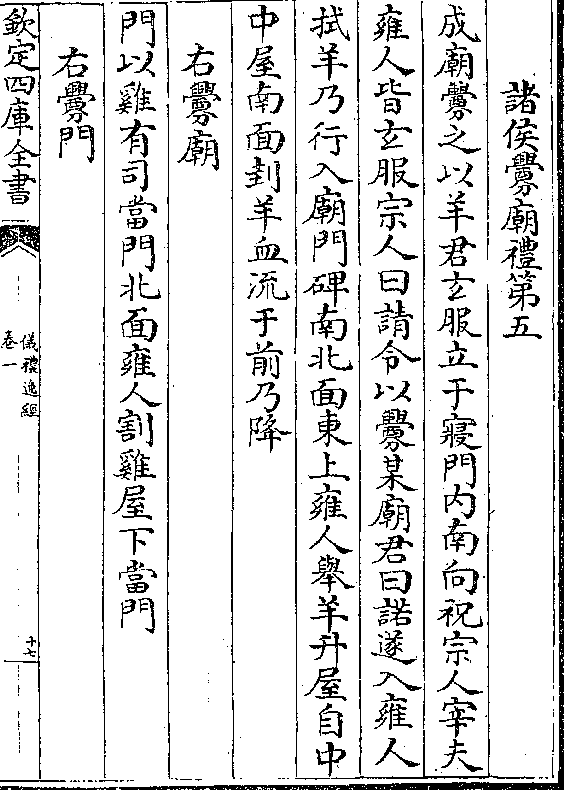 諸侯釁廟禮第五
成廟釁之以羊君玄服立于寢門内南向祝宗人宰夫
雍人皆玄服宗人曰請令以釁某廟君曰諾遂入雍人
拭羊乃行入廟門碑南北面東上雍人舉羊升屋自中
中屋南面刲羊血流于前乃降
右釁廟
門以雞有司當門北面雍人割雞屋下當門
右釁門
欽定四庫全書
儀禮逸經
卷一
十七